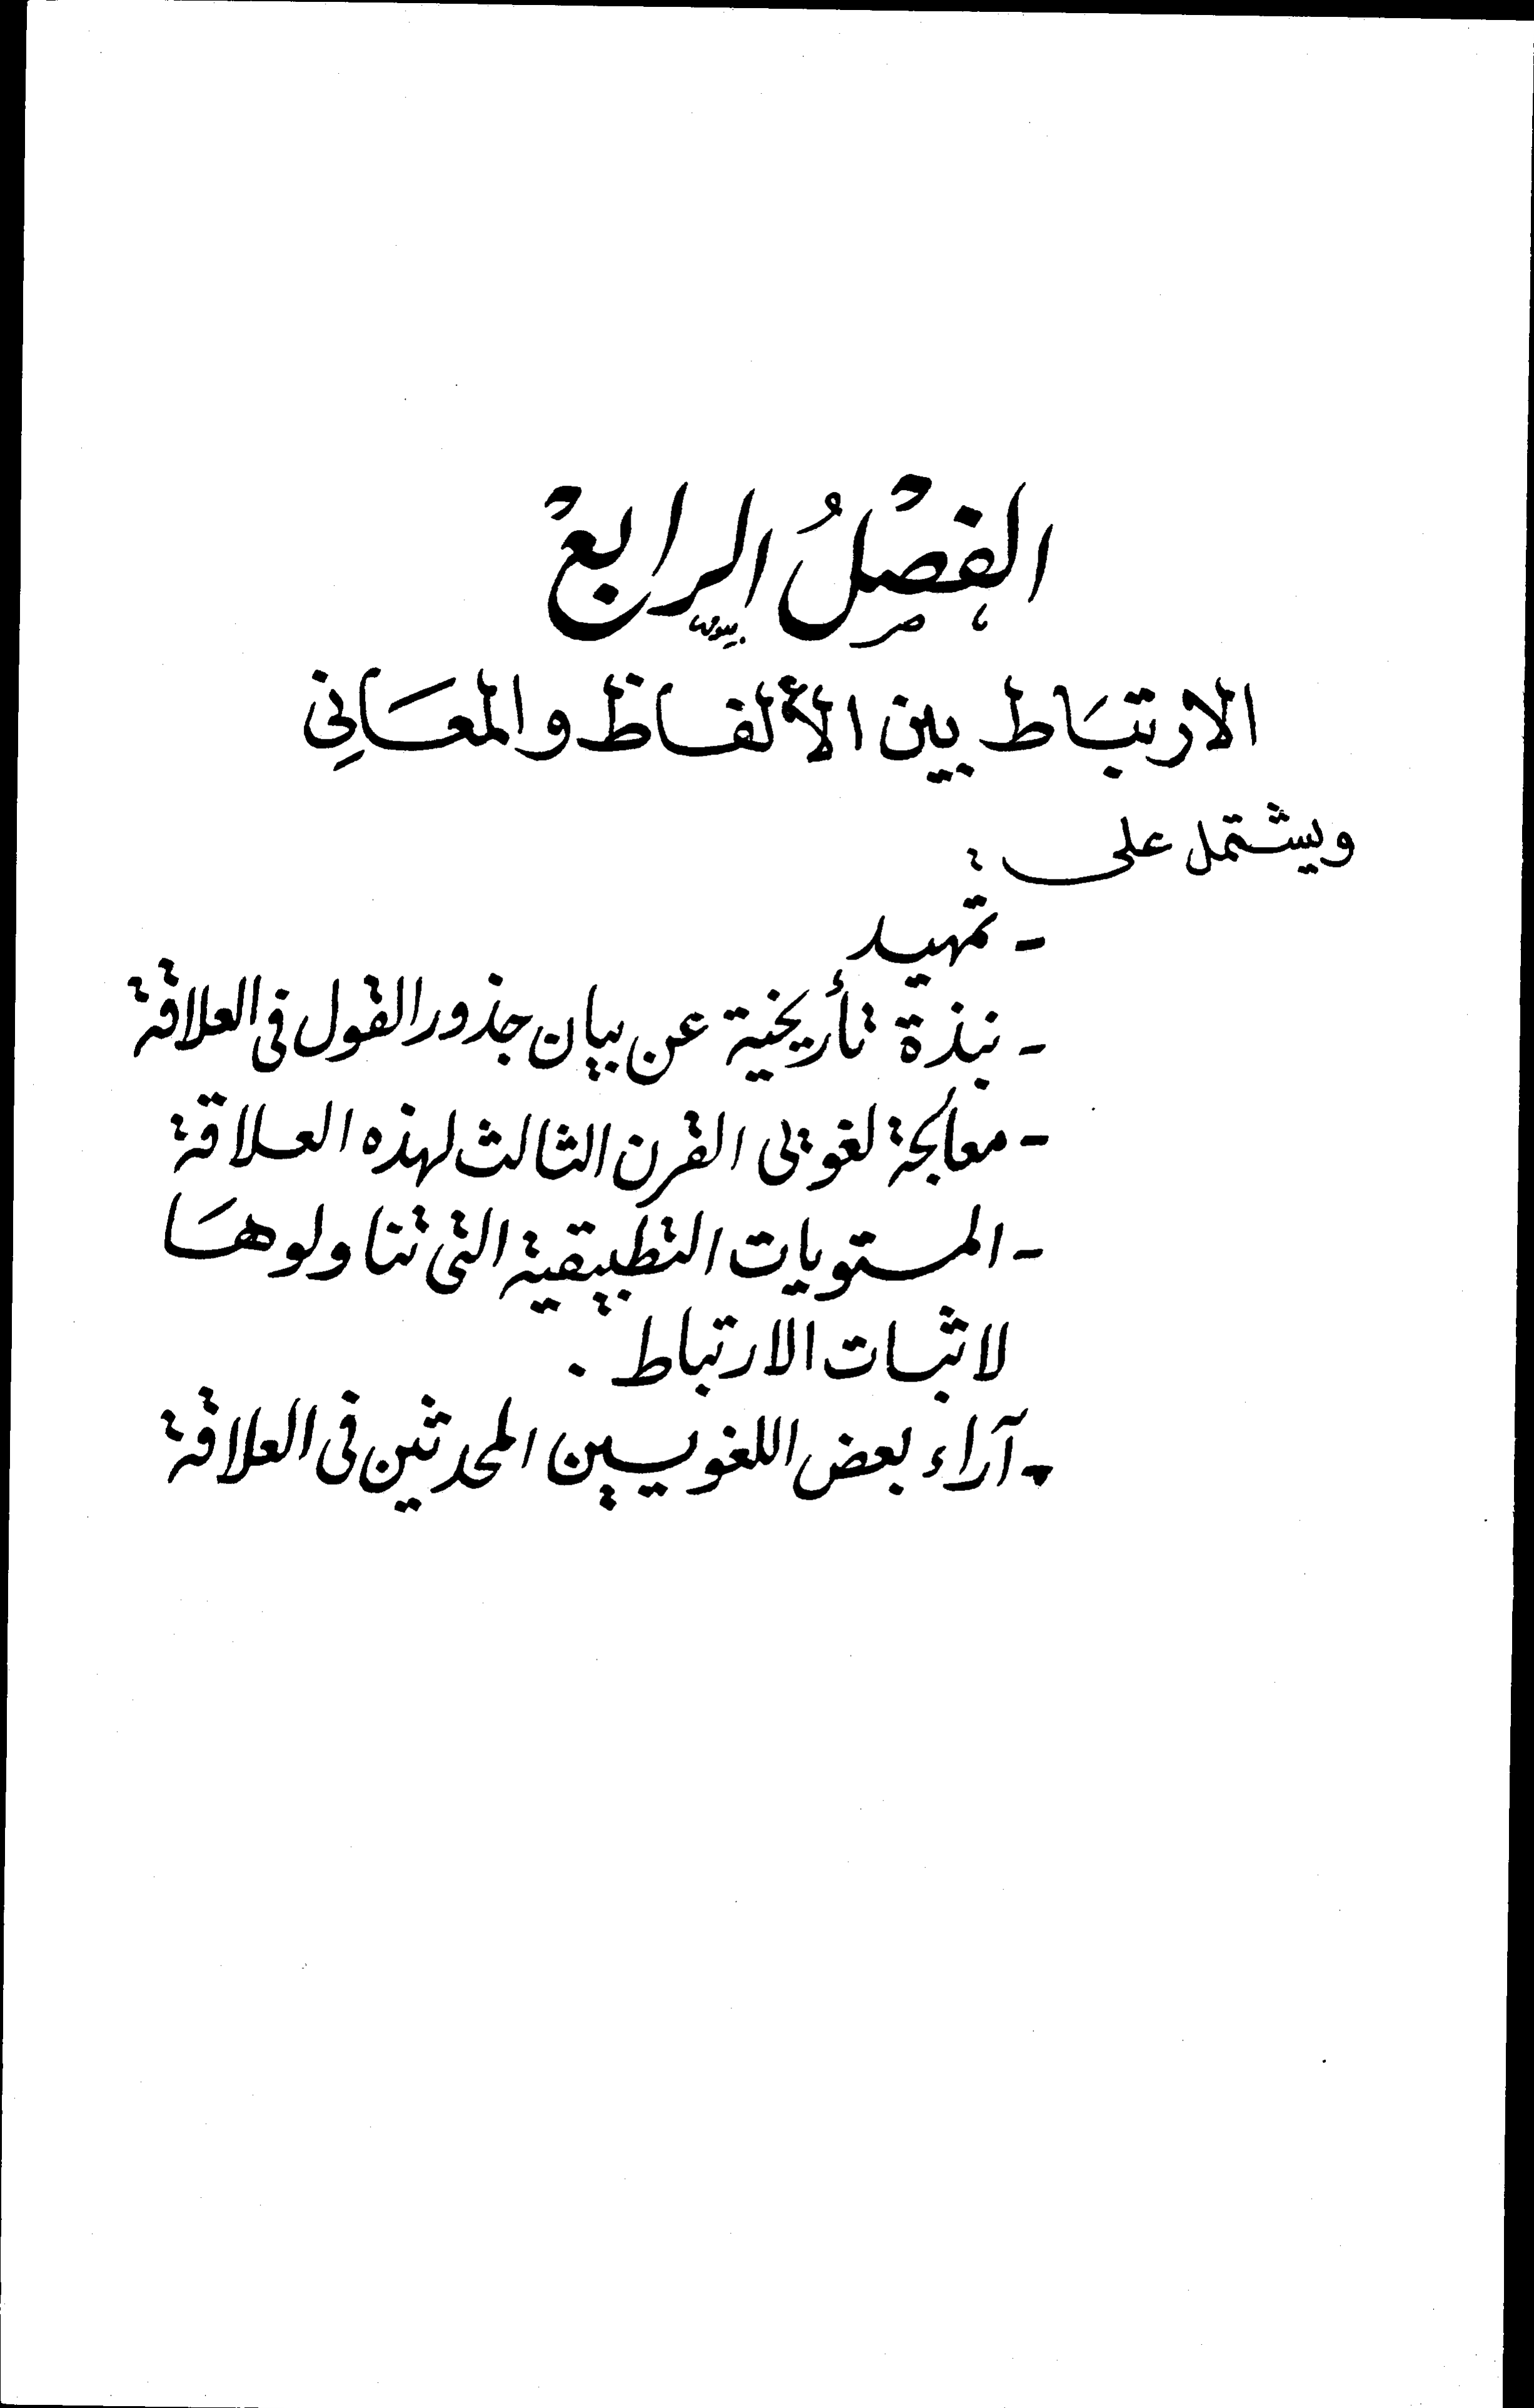 الفصْلُ الرابعْ
الارتبَاط بين الألفاظ والمعَانِي
ويشتمل على :
- تمهيد
- نبذة تأريخية عن بيان جذور القول في العلاقة
- معالجة لغوتى القرن الثالث لهذه العلاقة
- المستويات التطبيقية التى تناولوهَا
لاثبات الارتباط .
- آراء بعض اللغويين المحدثين فى العلاقة